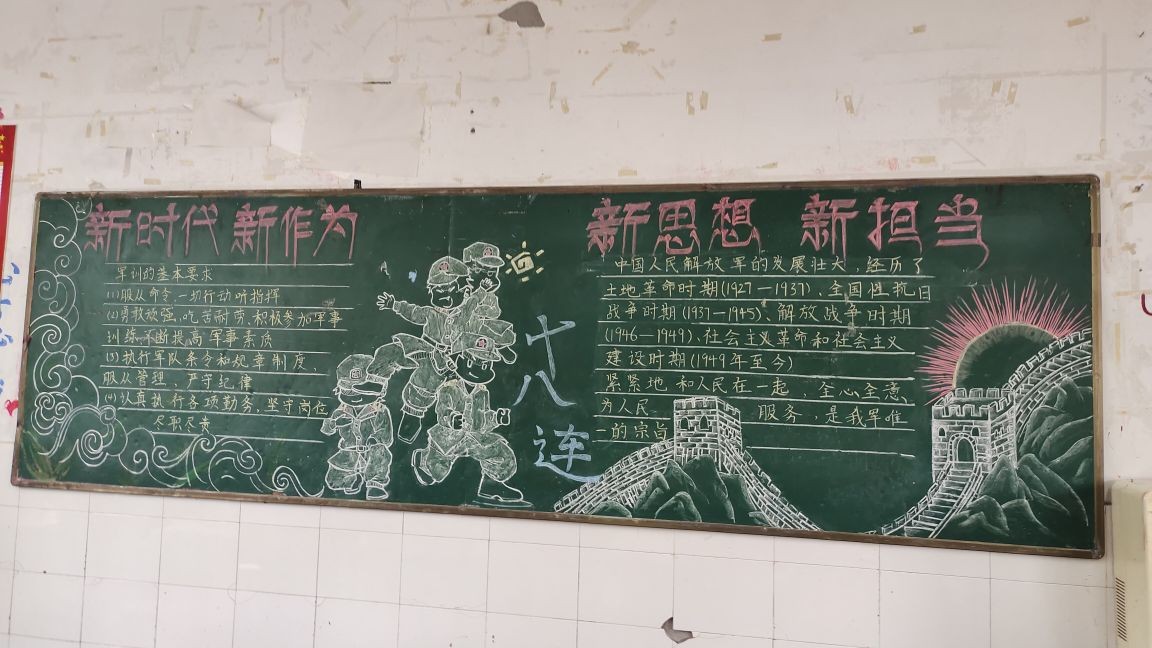 新时代 新作为
军训的基本要求
(1)服从命令,一切行动听指挥
(2)勇敢顽强,吃苦耐劳,积极参加军事
训练,不断提高军事素质
(3)执行军队条令和规章制度,
服从管理,严守纪律
(4)认真执行各项勤务,坚守岗位
尽职尽责
十八连
新思想 新担当
中国人民解放军的发展壮大,经历了
土地革命时期(1927—1937)、全国性抗日
战争时期(1937—1945)、解放战争时期
(1946—1949)、社会主义革命和社会主义
建设时期(1949年至今)
紧紧地和人民在一起,全心全意
为人民 服务,是我军唯
一的宗旨